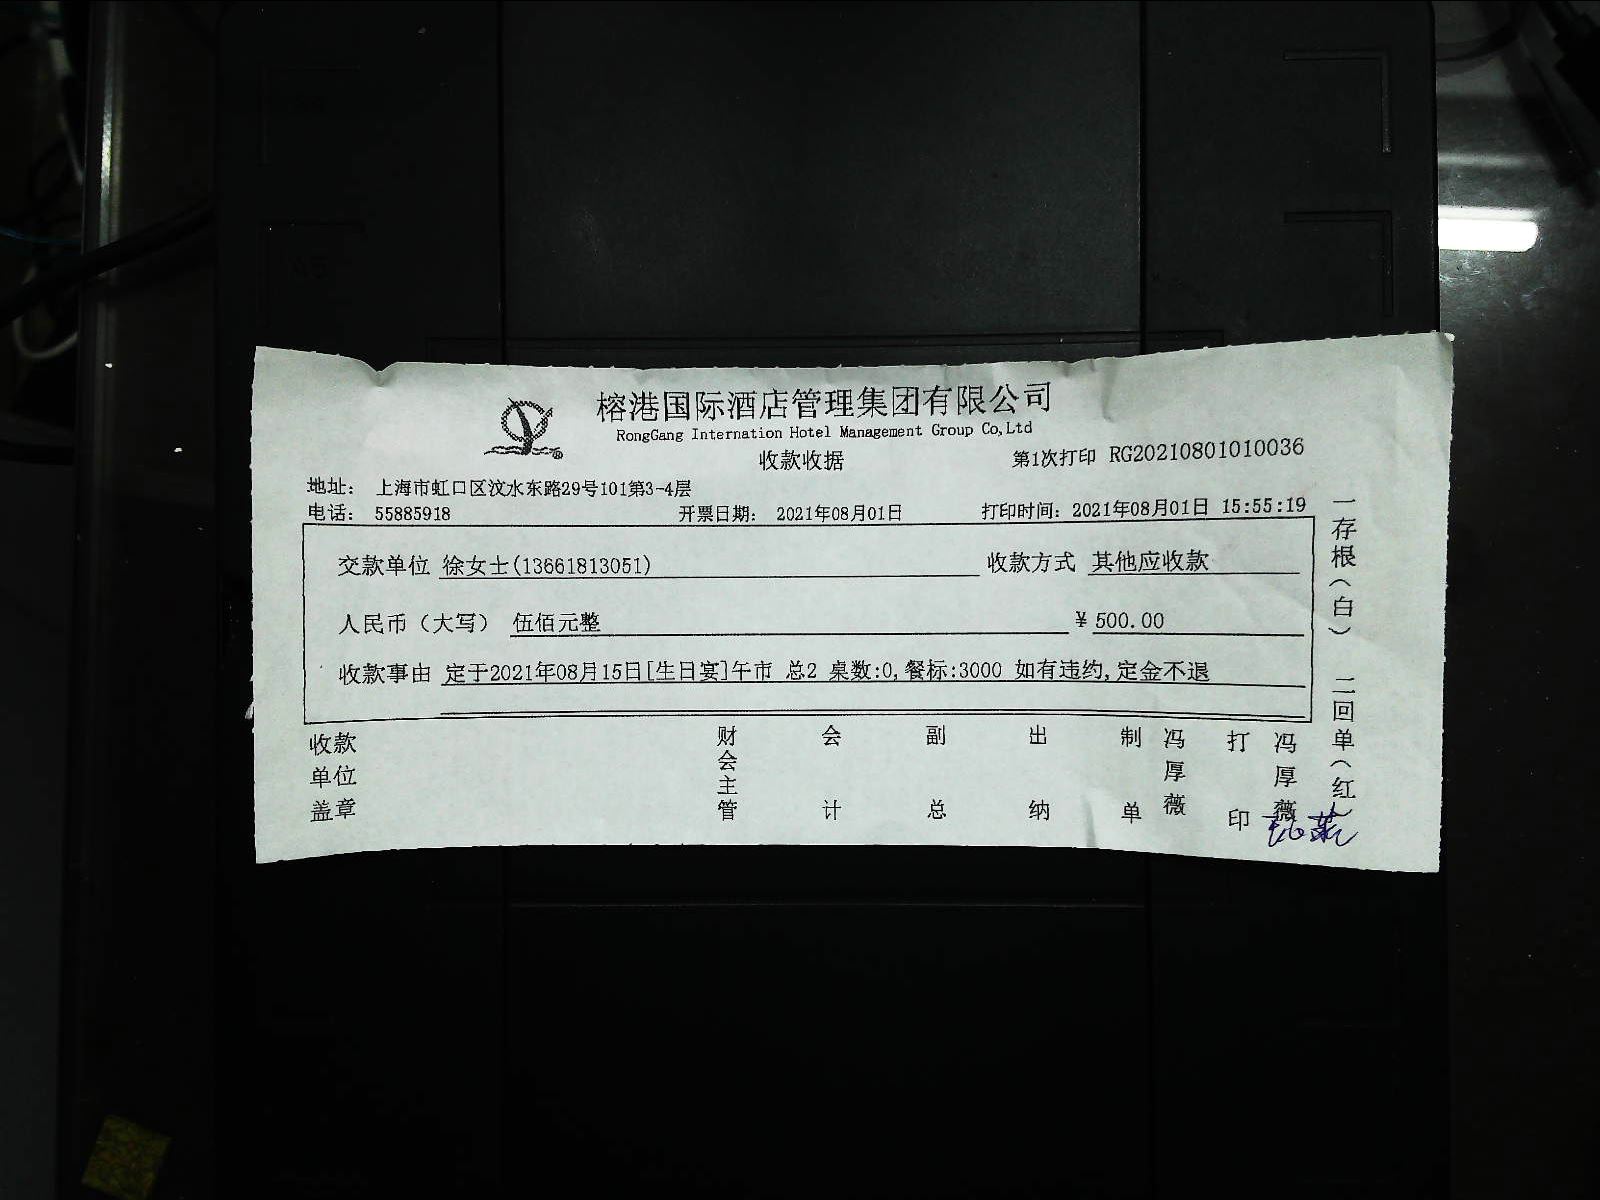 榕港国际酒店管理集团有限公司
RongGang Internation Hotel Management Group Co,Ltd
收款收据
第1次打印 RG20210801010036
地址： 上海市虹口区汶水东路29号101第3-4层
电话： 55885918 开票日期： 2021年08月01日 打印时间： 2021年08月01日 15:55:19
交款单位 徐女士(13661813051) 收款方式 其他应收款
人民币（大写） 伍佰元整 ¥ 500.00
收款事由 定于2021年08月15日[生日宴]午市 总2 桌数:0,餐标:3000 如有违约,定金不退
收款单位盖章
财会主管
会计
副总
出纳
制单
冯厚薇
打印
冯厚薇
一存根（白） 二回单（红）